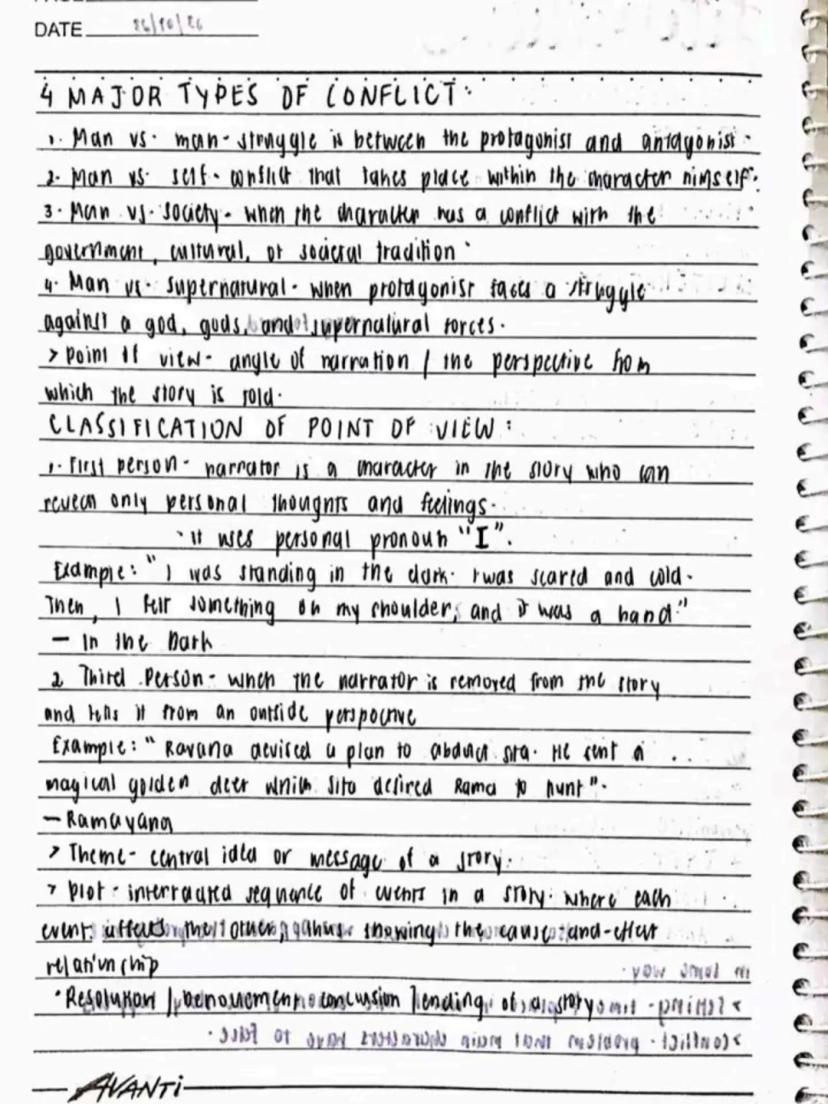 DATE
4 MAJOR TYPES OF CONFLICT:
1. Man vs. man - struggle is between the protagonist and antagonist.
2. Man vs. self - conflict that takes place within the character himself.
3. Man vs. society - when the character has a conflict with the
government, cultural, or societal tradition.
4. Man vs. supernatural - when protagonist faces a struggle
against a god, gods, and supernatural forces.
> Point of view - angle of narration / the perspective from
which the story is told.
CLASSIFICATION OF POINT OF VIEW:
1. First person - narrator is a character in the story who can
reveal only personal thoughts and feelings.
· it uses personal pronoun "I".
Example: " I was standing in the dark. I was scared and cold.
Then, I felt something on my shoulder, and it was a hand."
— In the Dark
2. Third Person - when the narrator is removed from the story
and tells it from an outside perspective
Example: " Ravana devised a plan to abduct Sita. He sent a
magical golden deer which Sita desired Rama to hunt".
— Ramayana
> Theme - central idea or message of a story.
> Plot - interrelated sequence of events in a story where each
event affects the other, thus showing the cause-and-effect
relationship
· Resolution / denouement conclusion / ending of a story
AVANTi